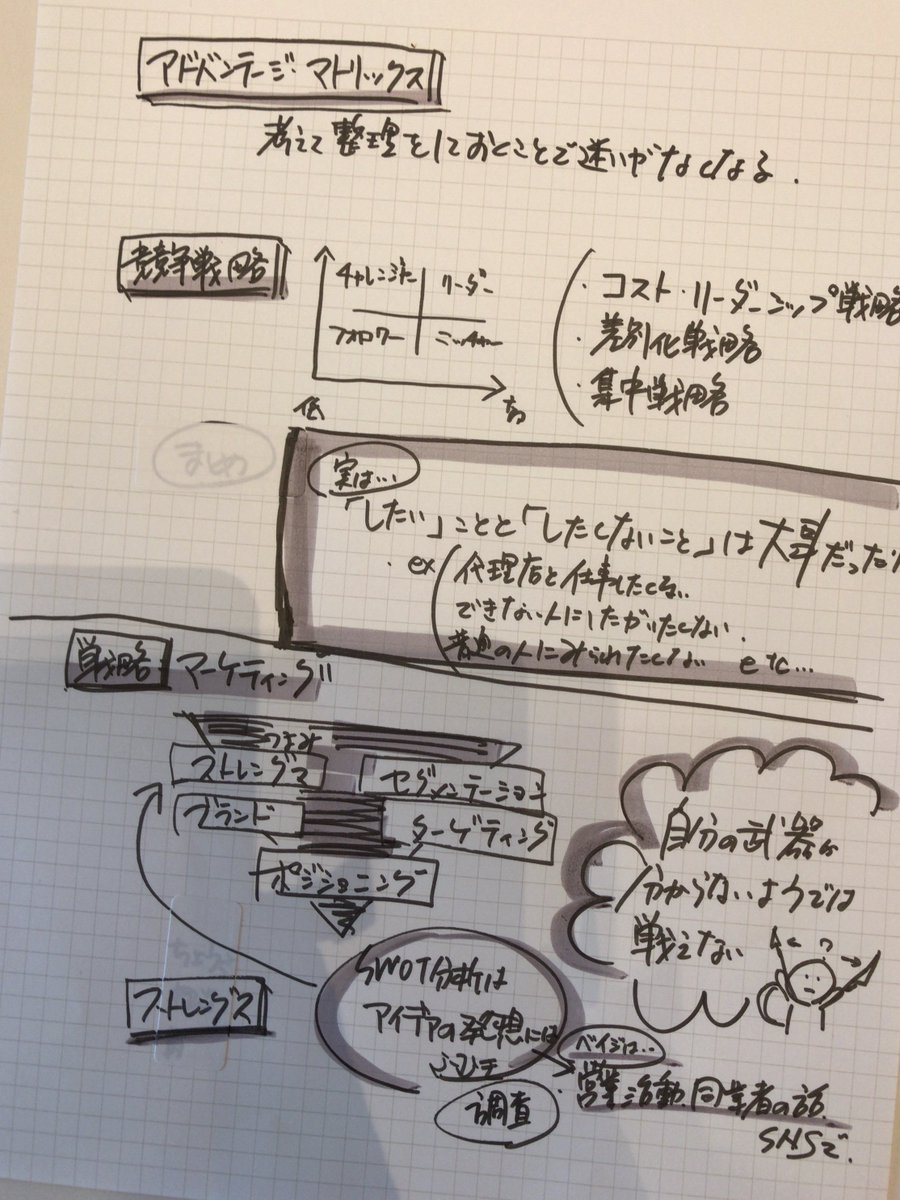 アドバンテージ・マトリックス
考えて整理をしておくことで迷いがなくなる.
競争戦略
チャレンジャー
リーダー
フォロワー
ニッチャー
低
高
・コスト・リーダーシップ戦略
・差別化戦略
・集中戦略
まとめ
実は…
「したい」ことと「したくないこと」は大事だったり
・ex
代理店と仕事したくない
できない人にしたがいたくない.
普通の人にみられたくない etc…
戦略
マーケティング
つまみ
ストレングス
セグメンテーション
ブランド
ターゲティング
ポジショニング
自分の武器が
分からないようでは
戦えない
?
SWOT分析は
アイデアの発想には
ストレングス
調査
ベイジは…
営業活動、同業者の話、
SNSで.